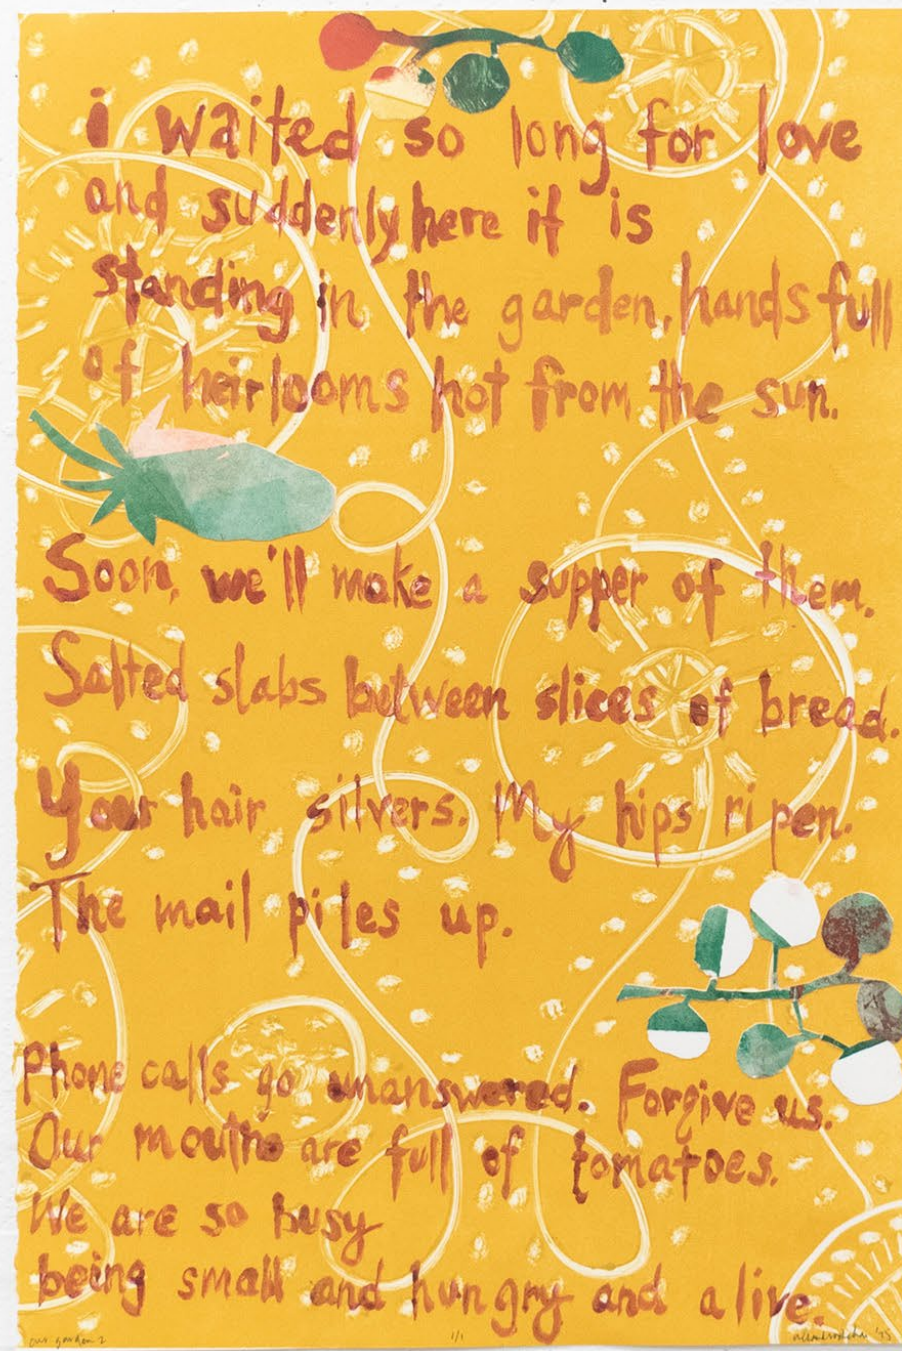 i waited so long for love
and suddenly here it is
standing in the garden, hands full
of heirlooms hot from the sun.
Soon, we'll make a supper of them.
Salted slabs between slices of bread.
Your hair silvers. My hips ripen.
The mail piles up.
Phone calls go unanswered. Forgive us.
Our mouths are full of tomatoes.
We are so busy
being small and hungry and alive.
our garden 2 1/1